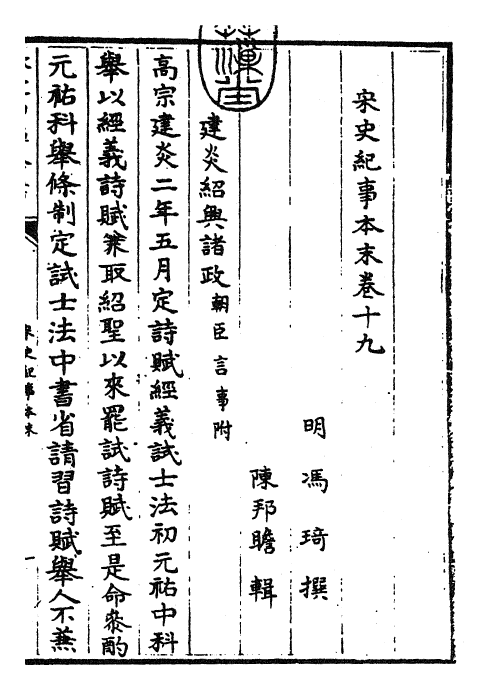 宋史紀事本末卷十九
明 馮琦 撰
陳邦瞻 輯
建炎紹興諸政朝臣言事附
高宗建炎二年五月定詩賦經義試士法初元祐中科
舉以經義詩賦兼取紹聖以來罷試詩賦至是命參酌
元祐科舉條制定試士法中書省請習詩賦舉人不兼
宋史紀事本末
一